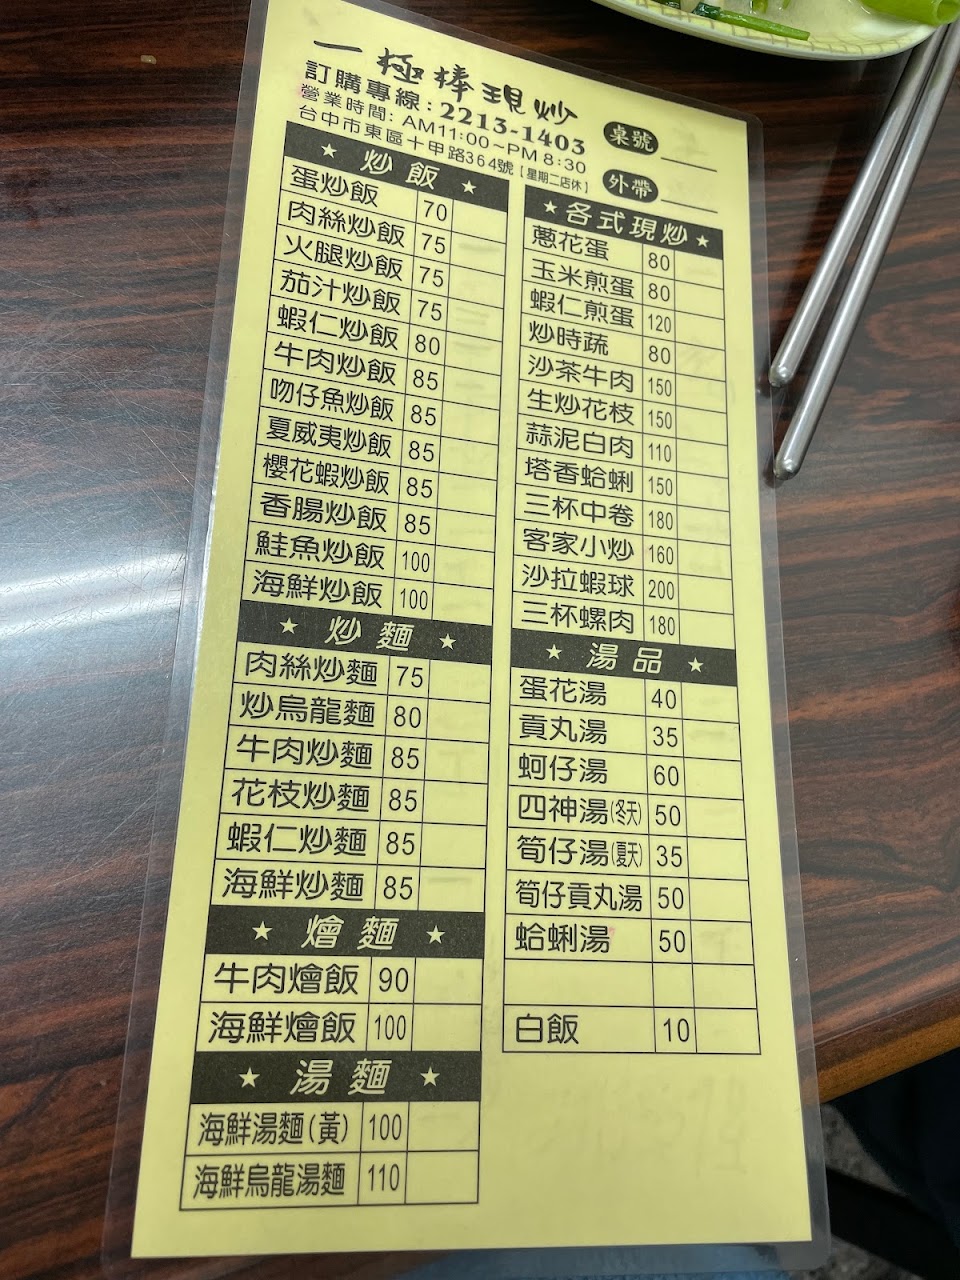 一極棒現炒
訂購專線:2213-1403
營業時間: AM11:00~PM8:30
台中市東區十甲路364號【星期二店休】
桌號
外帶
★ 炒飯 ★
蛋炒飯 70
肉絲炒飯 75
火腿炒飯 75
茄汁炒飯 75
蝦仁炒飯 80
牛肉炒飯 85
吻仔魚炒飯 85
夏威夷炒飯 85
櫻花蝦炒飯 85
香腸炒飯 85
鮭魚炒飯 100
海鮮炒飯 100
★ 炒麵 ★
肉絲炒麵 75
炒烏龍麵 80
牛肉炒麵 85
花枝炒麵 85
蝦仁炒麵 85
海鮮炒麵 85
★ 燴麵 ★
牛肉燴飯 90
海鮮燴飯 100
★ 湯麵 ★
海鮮湯麵(黃) 100
海鮮烏龍湯麵 110
★各式現炒★
蔥花蛋 80
玉米煎蛋 80
蝦仁煎蛋 120
炒時蔬 80
沙茶牛肉 150
生炒花枝 150
蒜泥白肉 110
塔香蛤蜊 150
三杯中卷 180
客家小炒 160
沙拉蝦球 200
三杯螺肉 180
★ 湯品 ★
蛋花湯 40
貢丸湯 35
蚵仔湯 60
四神湯(冬天) 50
筍仔湯(夏天) 35
筍仔貢丸湯 50
蛤蜊湯 50
白飯 10